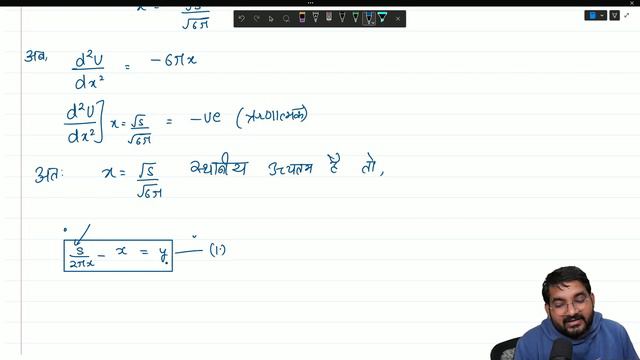 x = √s/√6π
अब, d²U/dx² = -6πx
d²U/dx²] x = √s/√6π = -ve (ऋणात्मक)
अतः x = √s/√6π स्थानीय उच्चतम है तो,
s/2πx - x = y —— (1.)